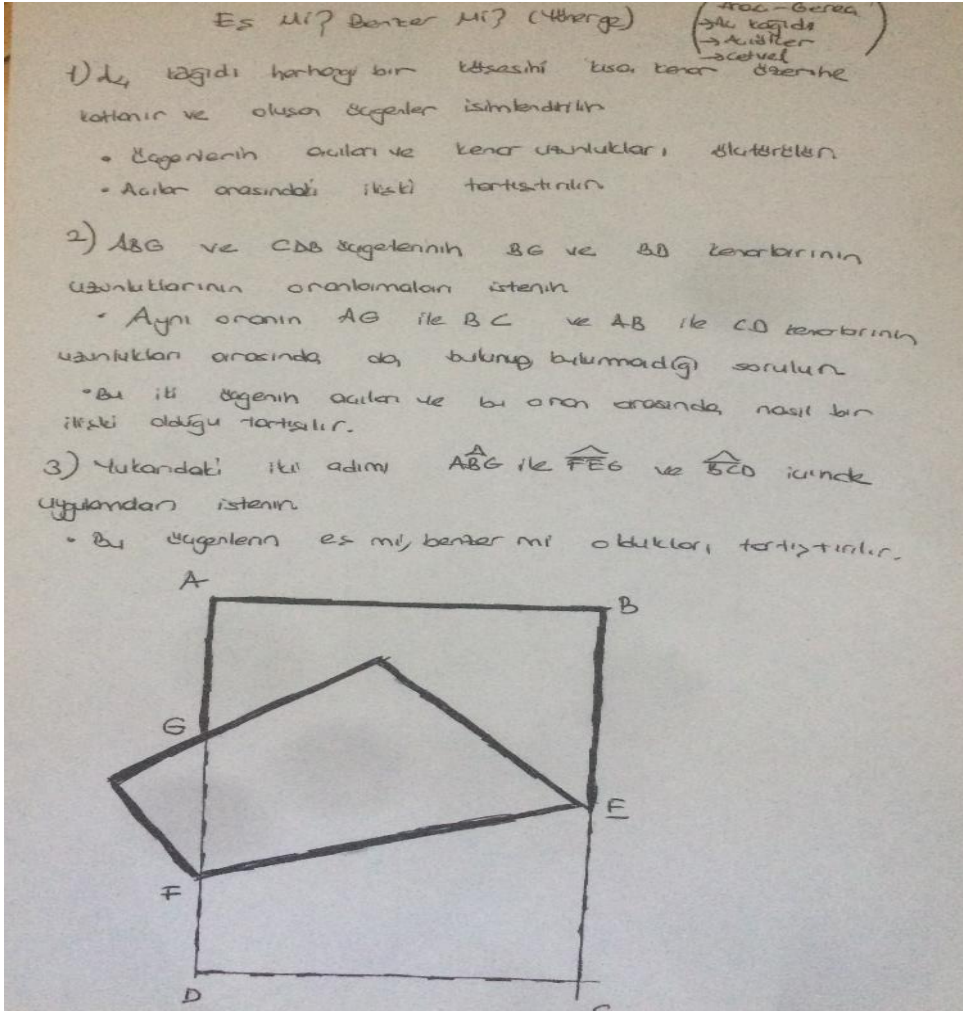 Eş Mi? Benzer Mi? (Yönerge)
Araç-Gereç
→A4 kağıdı
→Açıölçer
→Cetvel
1) A4 kağıdı herhangi bir köşesini kısa kenar üzerine
katlanır ve oluşan üçgenler isimlendirilir
• Üçgenlerin açıları ve kenar uzunlukları ölçtürülür
• Açılar arasındaki ilişki tartıştırılır
2) ABG ve CDB üçgelerinin BG ve BD kenarlarının
uzunluklarının oranlamaları istenir
• Aynı oranın AG ile BC ve AB ile CD kenarlarının
uzunlukları arasında da bulunup bulunmadığı sorulur
• Bu iki üçgenin açıları ve bu oran arasında nasıl bir
ilişki olduğu tartışılır.
3) Yukarıdaki iki adımı ABG ile FEG ve BCD içinde
uygulandan istenir
• Bu üçgenlerin eş mi, benzer mi oldukları tartıştırılır.
A
B
G
E
F
D
C